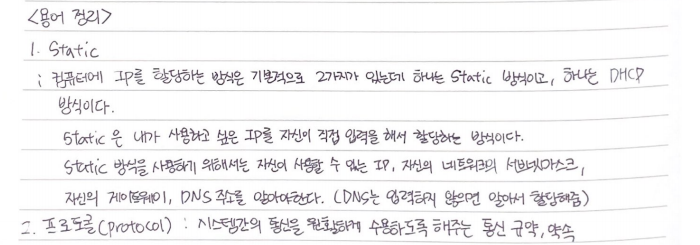 <용어 정리>
1. Static
; 컴퓨터에 IP를 할당하는 방식은 기본적으로 2가지가 있는데 하나는 Static 방식이고, 하나는 DHCP
방식이다.
Static 은 내가 사용하고 싶은 IP를 자신이 직접 입력을 해서 할당하는 방식이다.
Static 방식을 사용하기 위해서는 자신이 사용할 수 있는 IP, 자신의 네트워크의 서브넷마스크,
자신의 게이트웨이, DNS 주소를 알아야한다. (DNS는 입력하지 않으면 알아서 할당해줌)
2. 프로토콜(protocol) : 시스템간의 통신을 원활하게 수용하도록 해주는 통신 규약, 약속